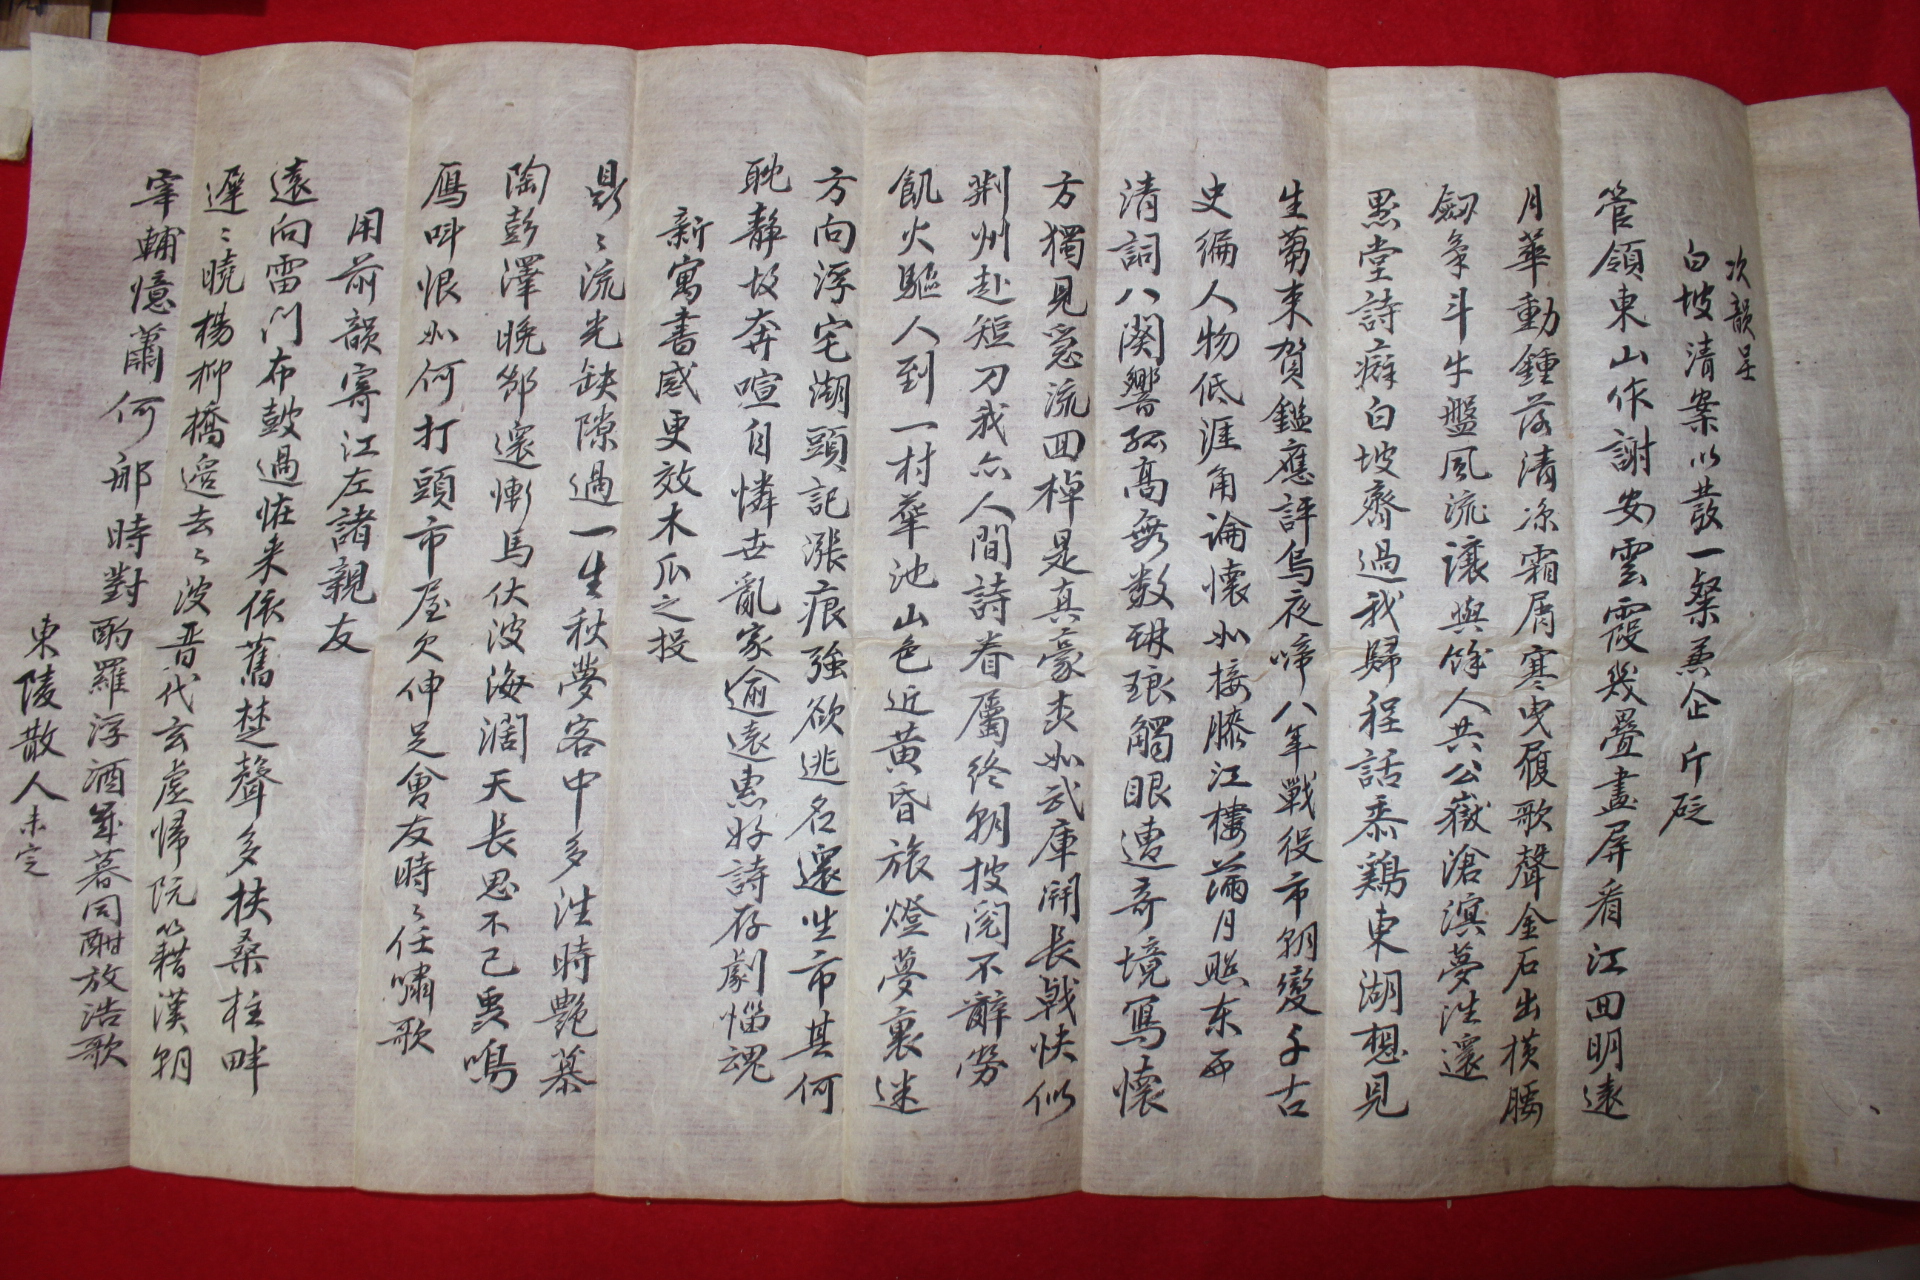 次韻呈
白坡清案以發一粲兼企斤砭
管領東山作謝安雲霞幾疊畫屏看江回明遠
月華動鍾落清凉霜屑寒曳履歌聲金石出橫腰
劒氣斗牛盤風流讓與餘人共公嶽滄溟夢往還
黙堂詩癖白坡齊過我歸程話黍鷄東湖想見
生蒭束賀鑑應評烏夜啼八年戰役市朝變千古
史編人物低涯角論懷如接膝江樓兩月照东西
清詞八闋響孤高無数琳琅觸眼遭奇境寫懷
方獨見急流回棹是真豪麦如武庫開長戟快似
荆州赴短刀我亦人間詩眷屬終朝披閱不辭勞
飢火驅人到一村華池山色近黄昏旅燈夢裏迷
方向浮宅湖頭記漲痕強欲逃名還坐市其何
耽靜故奔喧自憐世亂家逾遠惠好詩存劇惱魂
新寓書感更效木瓜之投
駸〻流光缺隙過一生秋夢客中多往時艶慕
陶彭澤晚節還慚馬伏波海濶天長思不已云鳴
鴈呌恨如何打頭市屋欠伸足會友時〻任嘯歌
用前韻寄江左諸親友
遠向雷門布皷過恠来依舊楚聲多扶桑柱畔
遲〻曉楊柳橋邊去〻波晋代玄虛帰阮籍漢朝
宰輔憶蕭何那時對酌羅浮酒歲暮同酣放浩歌
東陵散人未定